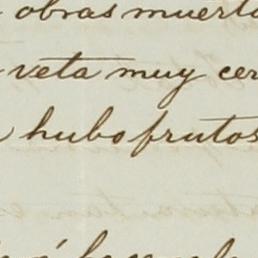 obras muert
veta muy cer
hubo frutos